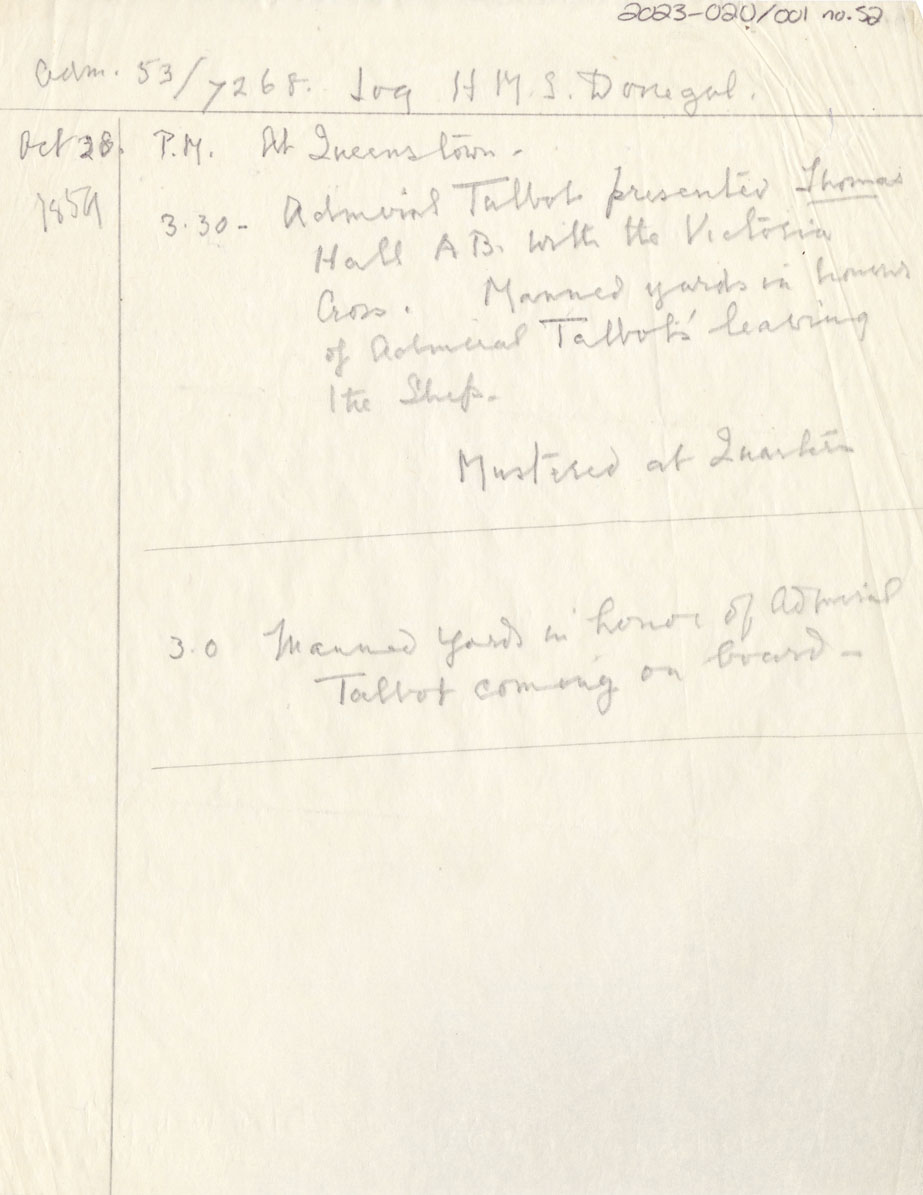 2023-020/001 no.52
Adm. 53/7268. Log H.M.S. Donegal.
Oct 28. P.M. At Queenstown -
1859
3.30 - Admiral Talbot presented Thomas
Hall A B. with the Victoria
Cross. Manned yards in honour
of Admiral Talbot's leaving
the Ship.
Mustered at Quarters
3.0 Manned yards in honor of Admiral
Talbot coming on board -